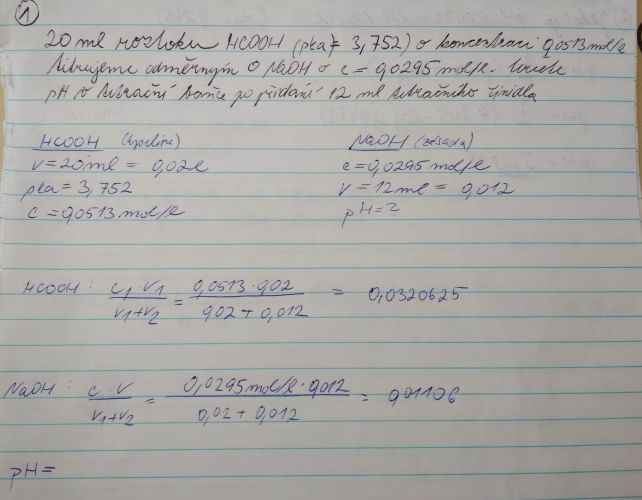 1
20 ml roztoku HCOOH (pKa = 3,752) o koncentraci 0,0513 mol/l
titrujeme odměrným o NaOH o c = 0,0295 mol/l. Určete
pH v titrační baňce po přidání 12 ml titračního činidla
HCOOH (kyselina)
V = 20 ml = 0,02 l
pKa = 3,752
c = 0,0513 mol/l
NaOH (zásada)
c = 0,0295 mol/l
V = 12 ml = 0,012
pH = ?
HCOOH : c1 · V1 / V1+V2 = 0,0513 · 0,02 / 0,02 + 0,012 = 0,0320625
NaOH : c · V / V1+V2 = 0,0295 mol/l · 0,012 / 0,02 + 0,012 = 0,01106
pH =